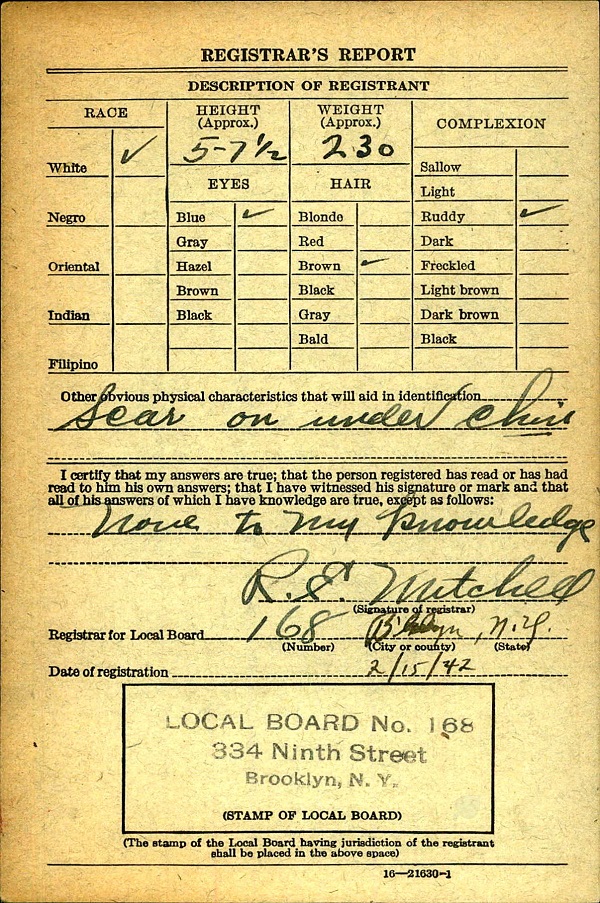 REGISTRAR'S REPORT
DESCRIPTION OF REGISTRANT
RACE
HEIGHT
(Approx.)
WEIGHT
(Approx.)
COMPLEXION
5-7 1/2
230
White ✓
Negro
Oriental
Indian
Filipino
EYES
Blue ✓
Gray
Hazel
Brown
Black
HAIR
Blonde
Red
Brown ✓
Black
Gray
Bald
Sallow
Light
Ruddy ✓
Dark
Freckled
Light brown
Dark brown
Black
Other obvious physical characteristics that will aid in identification
Scar on under chin
I certify that my answers are true; that the person registered has read or has had
read to him his own answers; that I have witnessed his signature or mark and that
all of his answers of which I have knowledge are true, except as follows:
None to my knowledge
R. E. Mitchell
(Signature of registrar)
Registrar for Local Board 168 B'klyn, N.Y.
(Number) (City or county) (State)
Date of registration 2/15/42
LOCAL BOARD No. 168
334 Ninth Street
Brooklyn, N. Y.
(STAMP OF LOCAL BOARD)
(The stamp of the Local Board having jurisdiction of the registrant
shall be placed in the above space)
16—21630-1